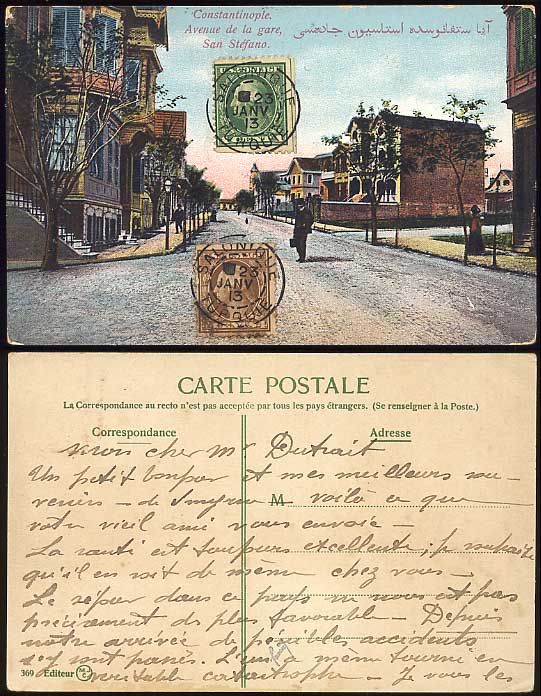 Constantinople.
Avenue de la gare,
San Stéfano.
آيا ستفانوسده استاسيون جاده‌سى
SALONIQUE
23
JANV
13
TURQUIE
SALONIQUE
23
JANV
13
TURQUIE
CARTE POSTALE
La Correspondance au recto n'est pas acceptée par tous les pays étrangers. (Se renseigner à la Poste.)
Correspondance Adresse
Mon cher Mr Dutrait
Un petit bonjour et mes meilleurs sou-
venirs — de Smyrne — M voilà ce que
votre vieil ami vous envoie —
La santé est toujours excellente; je souhaite
qu'il en soit de même chez vous —
Le séjour dans ce pays ne nous est pas
précisément des plus favorable — Depuis
notre arrivée de pénibles accidents
s'y sont passés. L'un a même tourné en
369 Editeur MJC véritable catastrophe — Je vous les